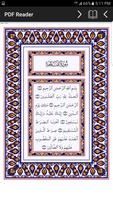 5:11 PM
PDF Reader
سُورَةُ الْفَاتِحَةِ
بِسْمِ اللَّهِ الرَّحْمَٰنِ الرَّحِيمِ
الْحَمْدُ لِلَّهِ رَبِّ الْعَالَمِينَ
الرَّحْمَٰنِ الرَّحِيمِ مَالِكِ يَوْمِ الدِّينِ
إِيَّاكَ نَعْبُدُ وَإِيَّاكَ نَسْتَعِينُ اهْدِنَا
الصِّرَاطَ الْمُسْتَقِيمَ صِرَاطَ الَّذِينَ أَنْعَمْتَ
عَلَيْهِمْ غَيْرِ الْمَغْضُوبِ عَلَيْهِمْ
وَلَا الضَّالِّينَ